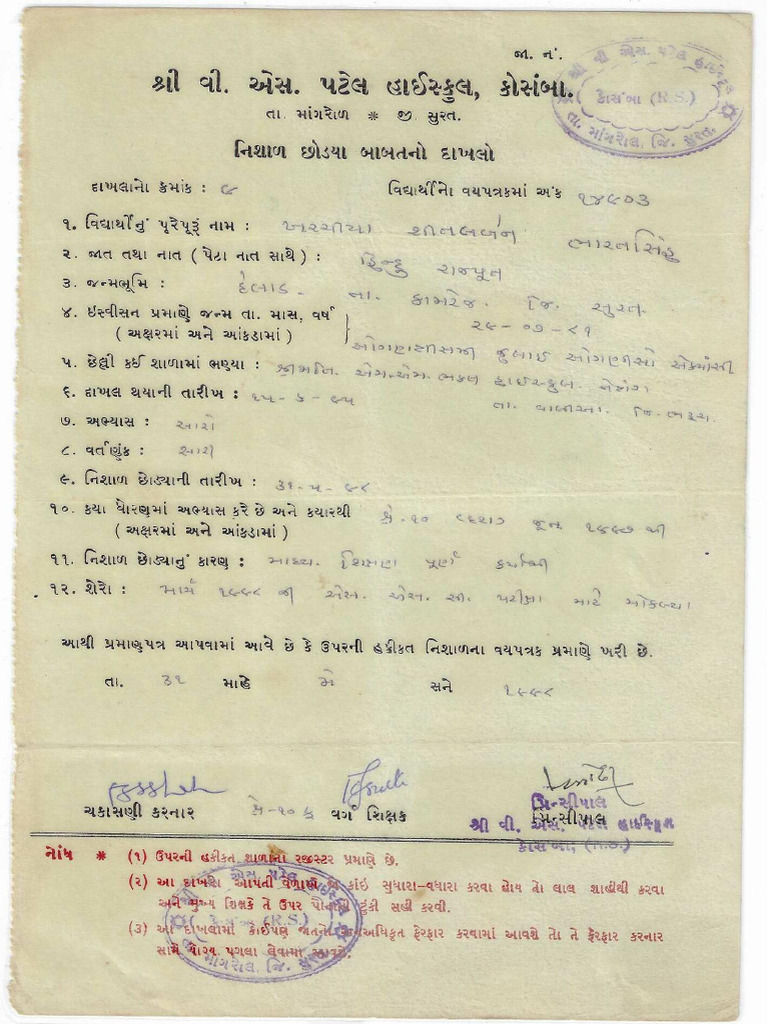 જા. નં.
શ્રી વી. એસ. પટેલ હાઈસ્કુલ, કોસંબા.
તા. માંગરોળ * જી સુરત.
શ્રી વી એસ. પટેલ હાઈસ્કુલ
કોસંબા (R.S.)
તા. માંગરોલ, જિ. સુરત.
નિશાળ છોડયા બાબતનો દાખલો
દાખલાનો ક્રમાંક : ૯ વિદ્યાર્થીનો વયપત્રકમાં અંક ૧૪૯૦૩
૧. વિદ્યાર્થીનું પૂરેપૂરૂં નામ : શીતલબેન ભારતસિંહ
૨. જાત તથા નાત ( પેટા નાત સાથે ) : હિન્દુ રાજપૂત
૩. જન્મભૂમિ : દેલાડ. તા. કામરેજ. જિ. સુરત.
૪. ઇસ્વીસન પ્રમાણે જન્મ તા. માસ, વર્ષ ૨૯-૦૭-૮૧
( અક્ષરમાં અને આંકડામાં ) ઓગણત્રીસમી જુલાઈ ઓગણીસો એક્યાંસી
૫. છેલ્લી કઈ શાળામાં ભણ્યા : શ્રીમતિ. એમ.એમ. ભક્ત હાઈસ્કુલ. નેત્રંગ
તા. વાલીયા. જિ. ભરૂચ.
૬. દાખલ થયાની તારીખ : ૧૫-૬-૯૫
૭. અભ્યાસ : સારો
૮. વર્તણુંક : સારી
૯. નિશાળ છોડ્યાની તારીખ : ૩૧-૫-૯૮
૧૦. કયા ધોરણમાં અભ્યાસ કરે છે અને કયારથી ધો-૧૦ જૂન ૧૯૯૭ થી
( અક્ષરમાં અને આંકડામાં )
૧૧. નિશાળ છોડ્યાનું કારણ : માધ્ય. શિક્ષણ પૂર્ણ કર્યાથી
૧૨. શેરો : માર્ચ ૧૯૯૮ ની એસ. એસ. સી. પરીક્ષા માટે મોકલ્યા
આથી પ્રમાણપત્ર આપવામાં આવે છે કે ઉપરની હકીકત નિશાળના વયપત્રક પ્રમાણે ખરી છે.
તા. ૩૧ માહે મે સને ૧૯૯૮
ચકાસણી કરનાર ધો-૧૦ વર્ગ શિક્ષક પ્રિન્સીપાલ
પ્રિન્સીપાલ
શ્રી વી. એસ. પટેલ હાઈસ્કુલ
કોસંબા, (R.S.)
નોંધ * (૧) ઉપરની હકીકત શાળાના રજીસ્ટર પ્રમાણે છે.
(૨) આ દાખલો આપતી વેળાએ જ કાંઇ સુધારા-વધારા કરવા હોય તો લાલ શાહીથી કરવા
અને મુખ્ય શિક્ષકે તે ઉપર પોતાની ટુંકી સહી કરવી.
(૩) આ દાખલામાં કોઈપણ જાતનો અનઅધિકૃત ફેરફાર કરવામાં આવશે તો તે ફેરફાર કરનાર
સામે યોગ્ય પગલા લેવામાં આવશે.
શ્રી વી એસ. પટેલ હાઈસ્કુલ
કોસંબા (R.S.)
તા. માંગરોલ, જિ. સુરત.